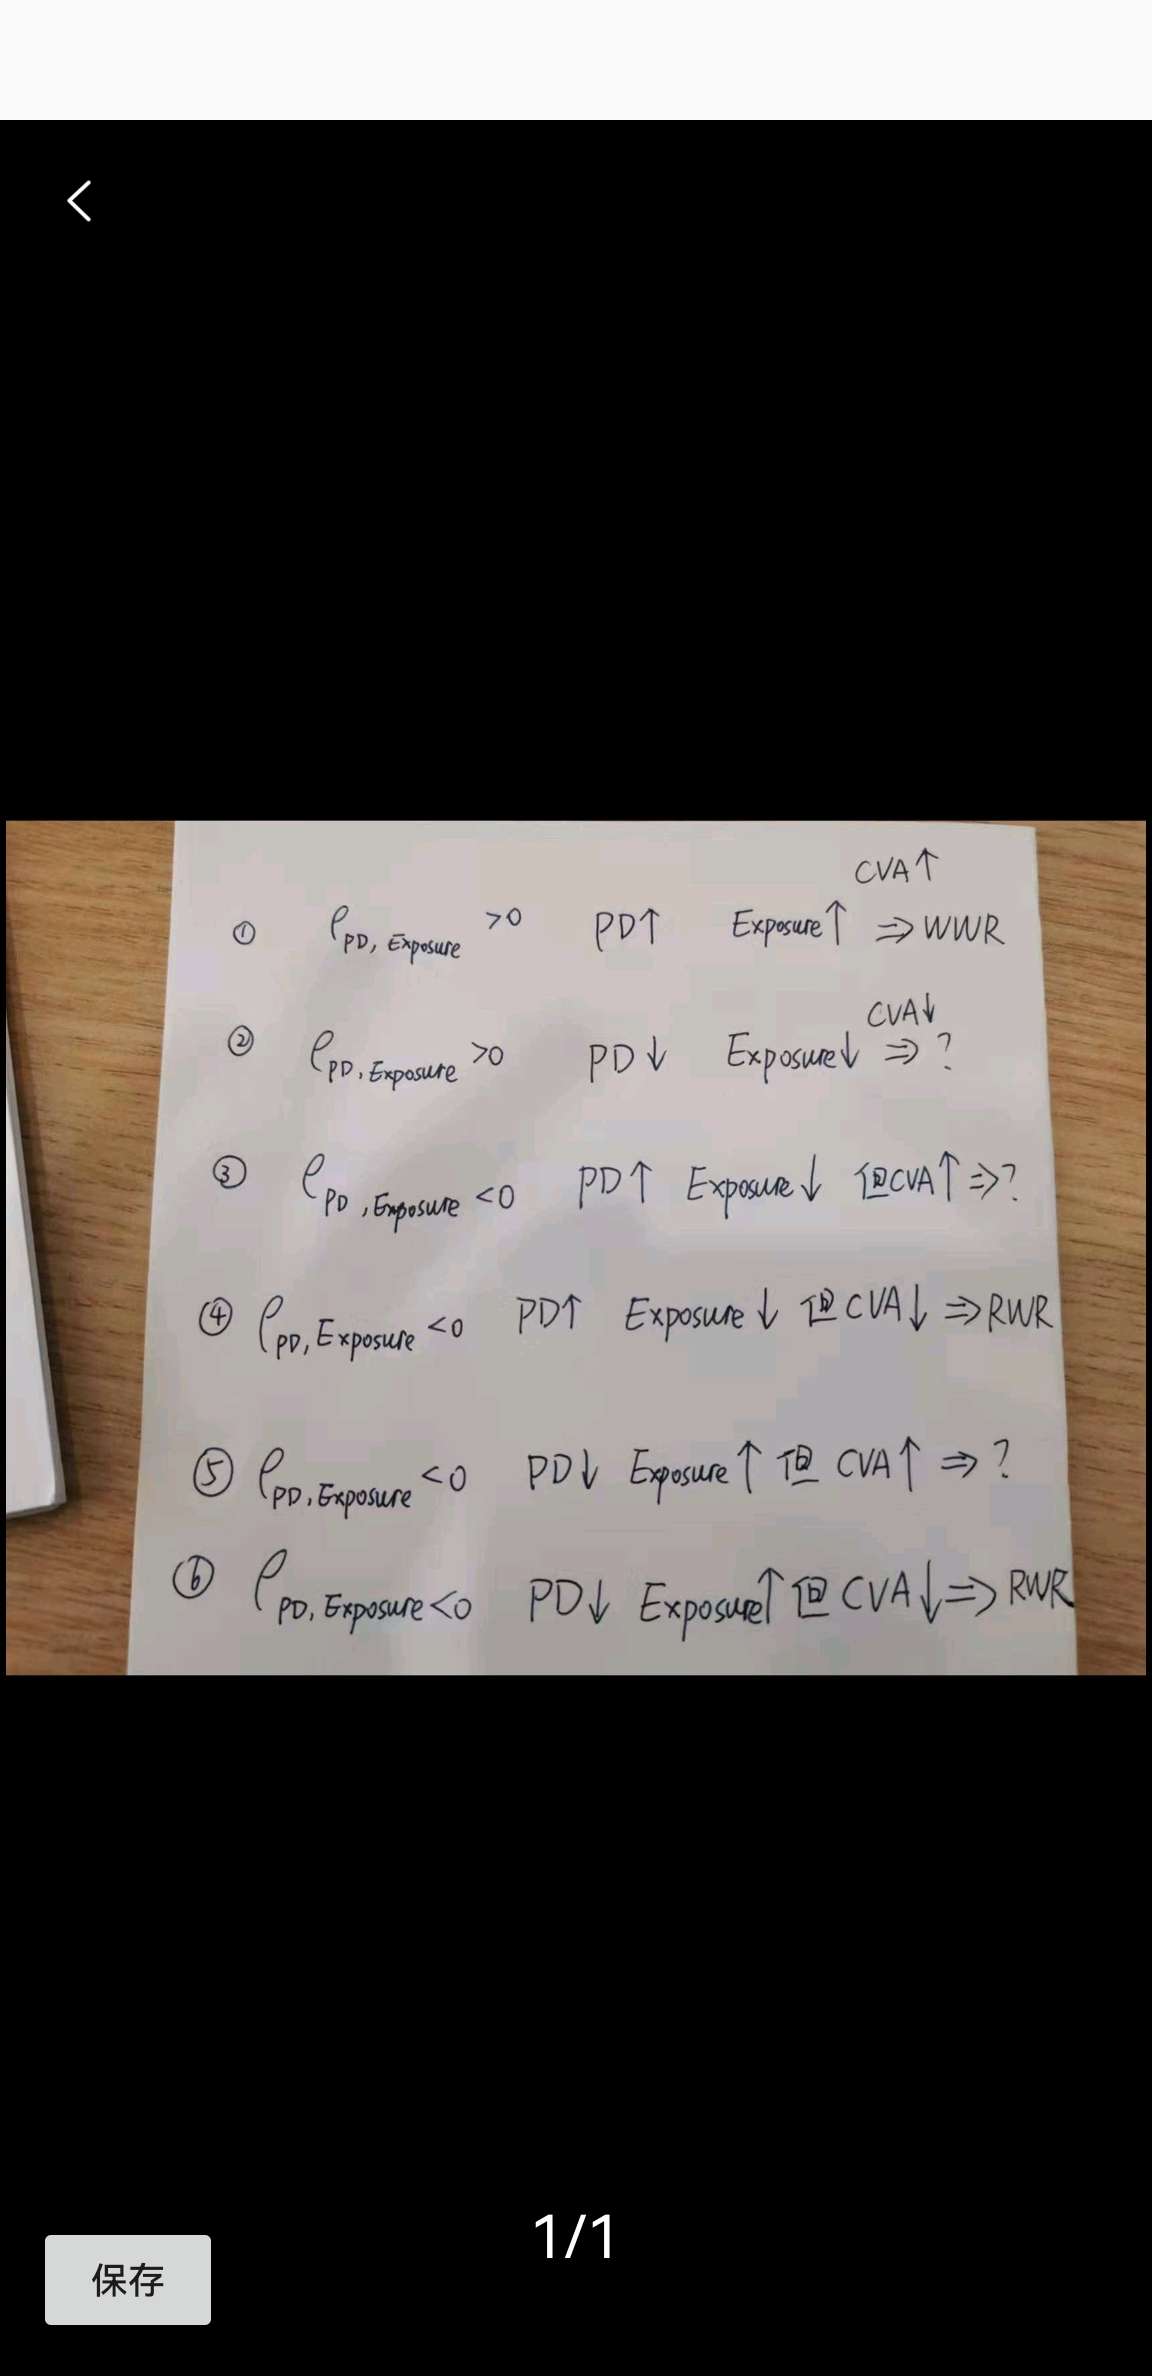 ① ρ PD, Exposure >0 PD↑ Exposure↑ CVA↑ ⇒ WWR
② ρ PD, Exposure >0 PD↓ Exposure↓ CVA↓ ⇒ ?
③ ρ PD, Exposure <0 PD↑ Exposure↓ 但CVA↑ ⇒ ?
④ ρ PD, Exposure <0 PD↑ Exposure↓ 但CVA↓ ⇒ RWR
⑤ ρ PD, Exposure <0 PD↓ Exposure↑ 但 CVA↑ ⇒ ?
⑥ ρ PD, Exposure <0 PD↓ Exposure↑ 但CVA↓ ⇒ RWR
1/1
保存